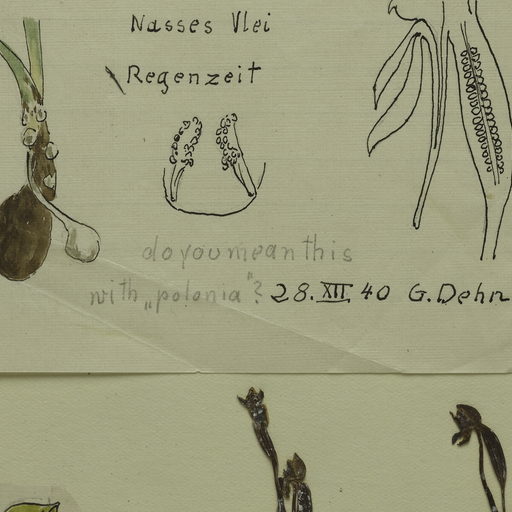 Nasses Vlei
Regenzeit
do you mean this
with „polonia"?
28. XII 40 G. Dehn